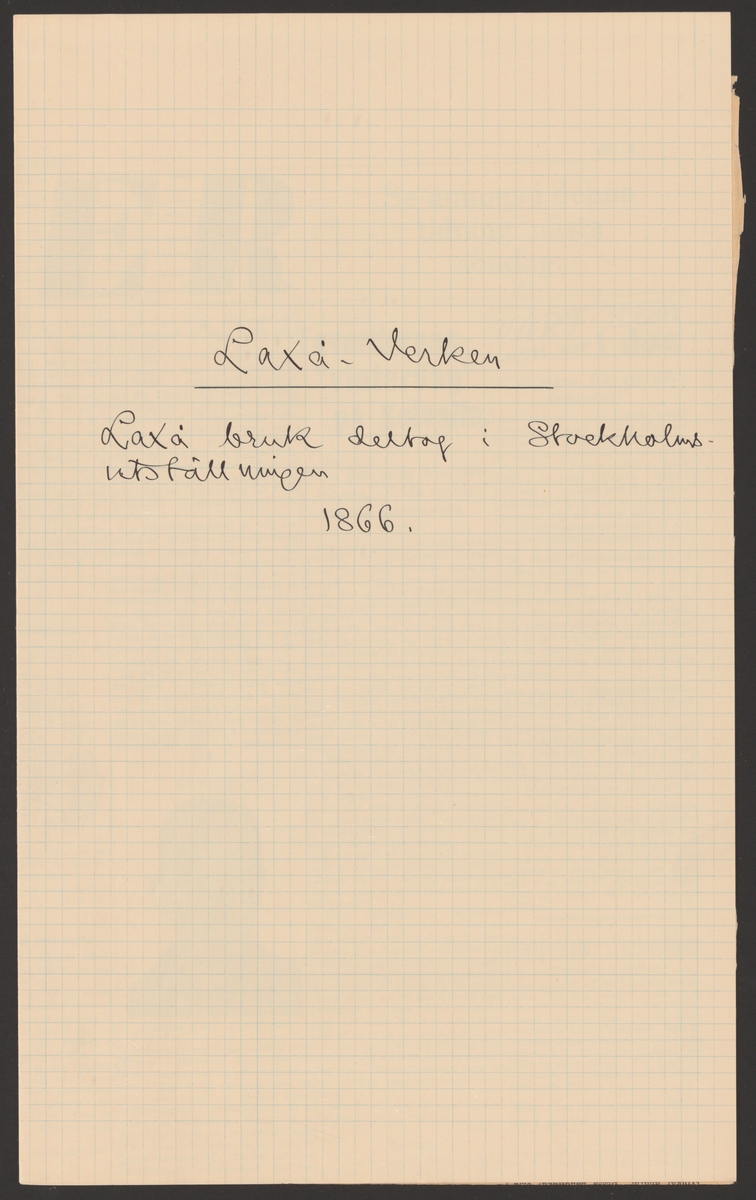 Laxå-Verken
Laxå bruk deltog i Stockholms-
utställningen
1866.